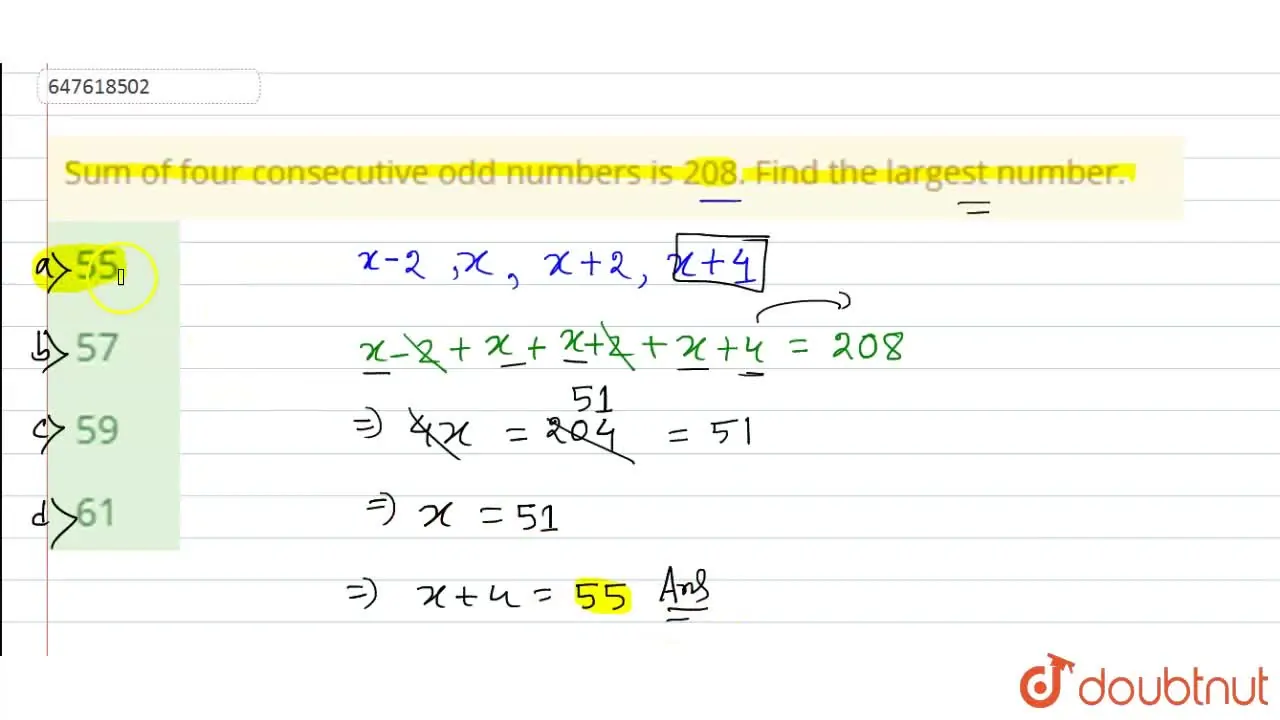 647618502
Sum of four consecutive odd numbers is 208. Find the largest number.
a) 55
x-2, x, x+2, x+4
b) 57
x-2+x+x+2+x+4 = 208
51
c) 59
=) 4x = 204 = 51
d) 61
=) x = 51
=) x+4 = 55 Ans
doubtnut